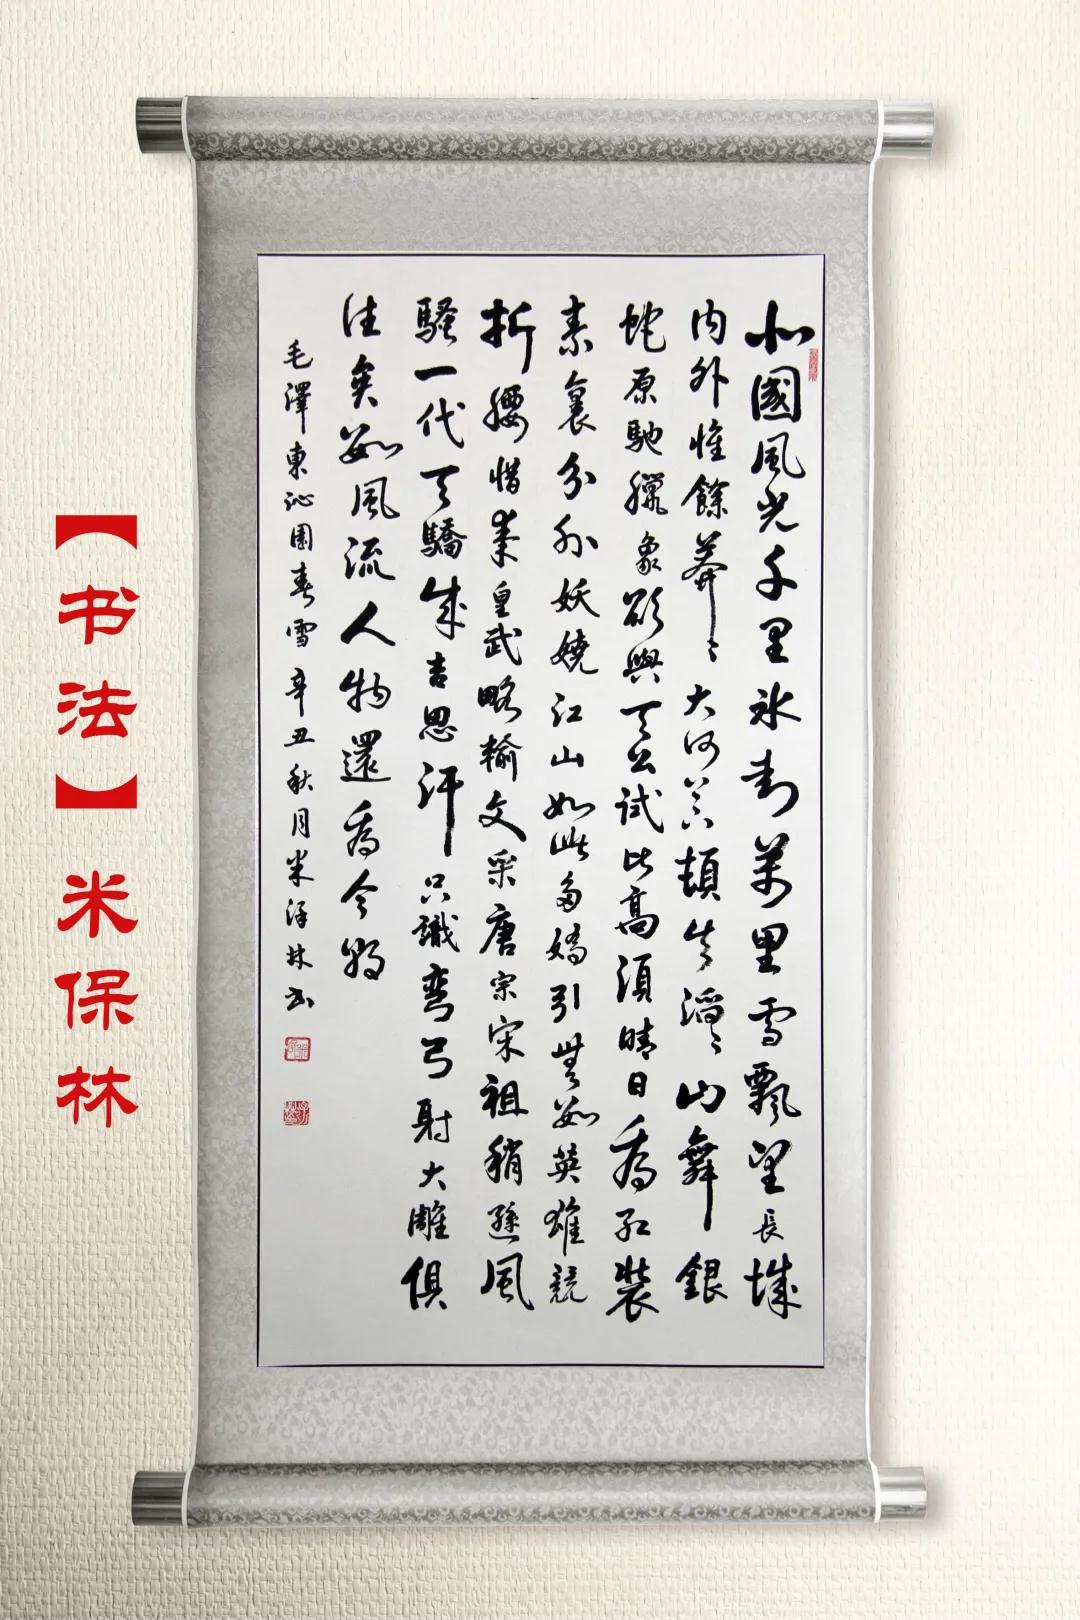 北國風光千里冰封萬里雪飄望長城
内外惟餘莽〻大河上下頓失滔〻山舞銀
蛇原馳臘象欲與天公試比高須晴日看紅裝
素裹分外妖嬈江山如此多嬌引無數英雄競
折腰惜秦皇武略輸文采唐宗宋祖稍遜風
騷一代天驕成吉思汗只識弯弓射大雕俱
往矣數風流人物還看今朝
毛澤東沁園春雪辛丑秋月米保林書
【书法】米保林